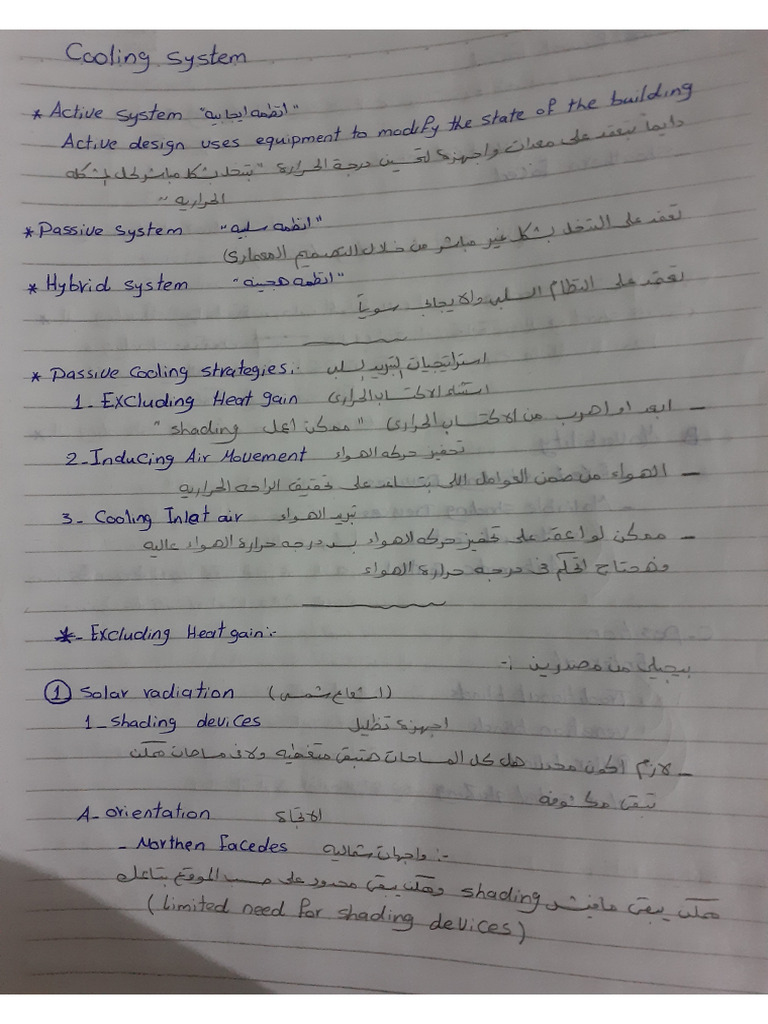 Cooling system
* Active system "انظمه ايجابيه"
Active design uses equipment to modify the state of the building
دايماً تعتمد على معدات واجهزة لتحسين درجة الحرارة "بتدخل بشكل مباشر لحل المشكله
الحراريه"
* Passive system "انظمه سلبيه" تعتمد على التدخل بشكل غير مباشر من خلال التصميم المعمارى)
* Hybrid system "انظمه هجينه" تعتمد على النظام السلبى والايجابى سوياً
* Passive Cooling strategies:- استراتيجيات التبريد السلبى
1- Excluding Heat gain استثناء الاكتساب الحرارى
- ابعد او اهرب من الاكتساب الحرارى "ممكن اعمل shading"
2-Inducing Air Movement تحفيز حركه الهواء
- الهواء من ضمن العوامل اللى بتساعد على تحقيق الراحه الحراريه
3- Cooling Inlet air تبريد الهواء
- ممكن لو اعتمد على تحفيز حركه الهواء بس درجه حرارة الهواء عاليه
فنحتاج اتحكم فى درجه حرارة الهواء
*- Excluding Heat gain:-
بيجيلى من مصدرين :-
① Solar radiation (اشعاع شمسى)
1- Shading devices اجهزة تظليل
- لازم اكون محدد هل كل المساحات هتبقى متغطيه ولا فى مساحات ممكن
تبقى مكشوفة
A- orientation الاتجاة
- Northen facedes واجهات شماليه :-
ممكن يبقى مافيش shading وممكن يبقى محدود على حسب الموقع بتاعك
(limited need for shading devices)